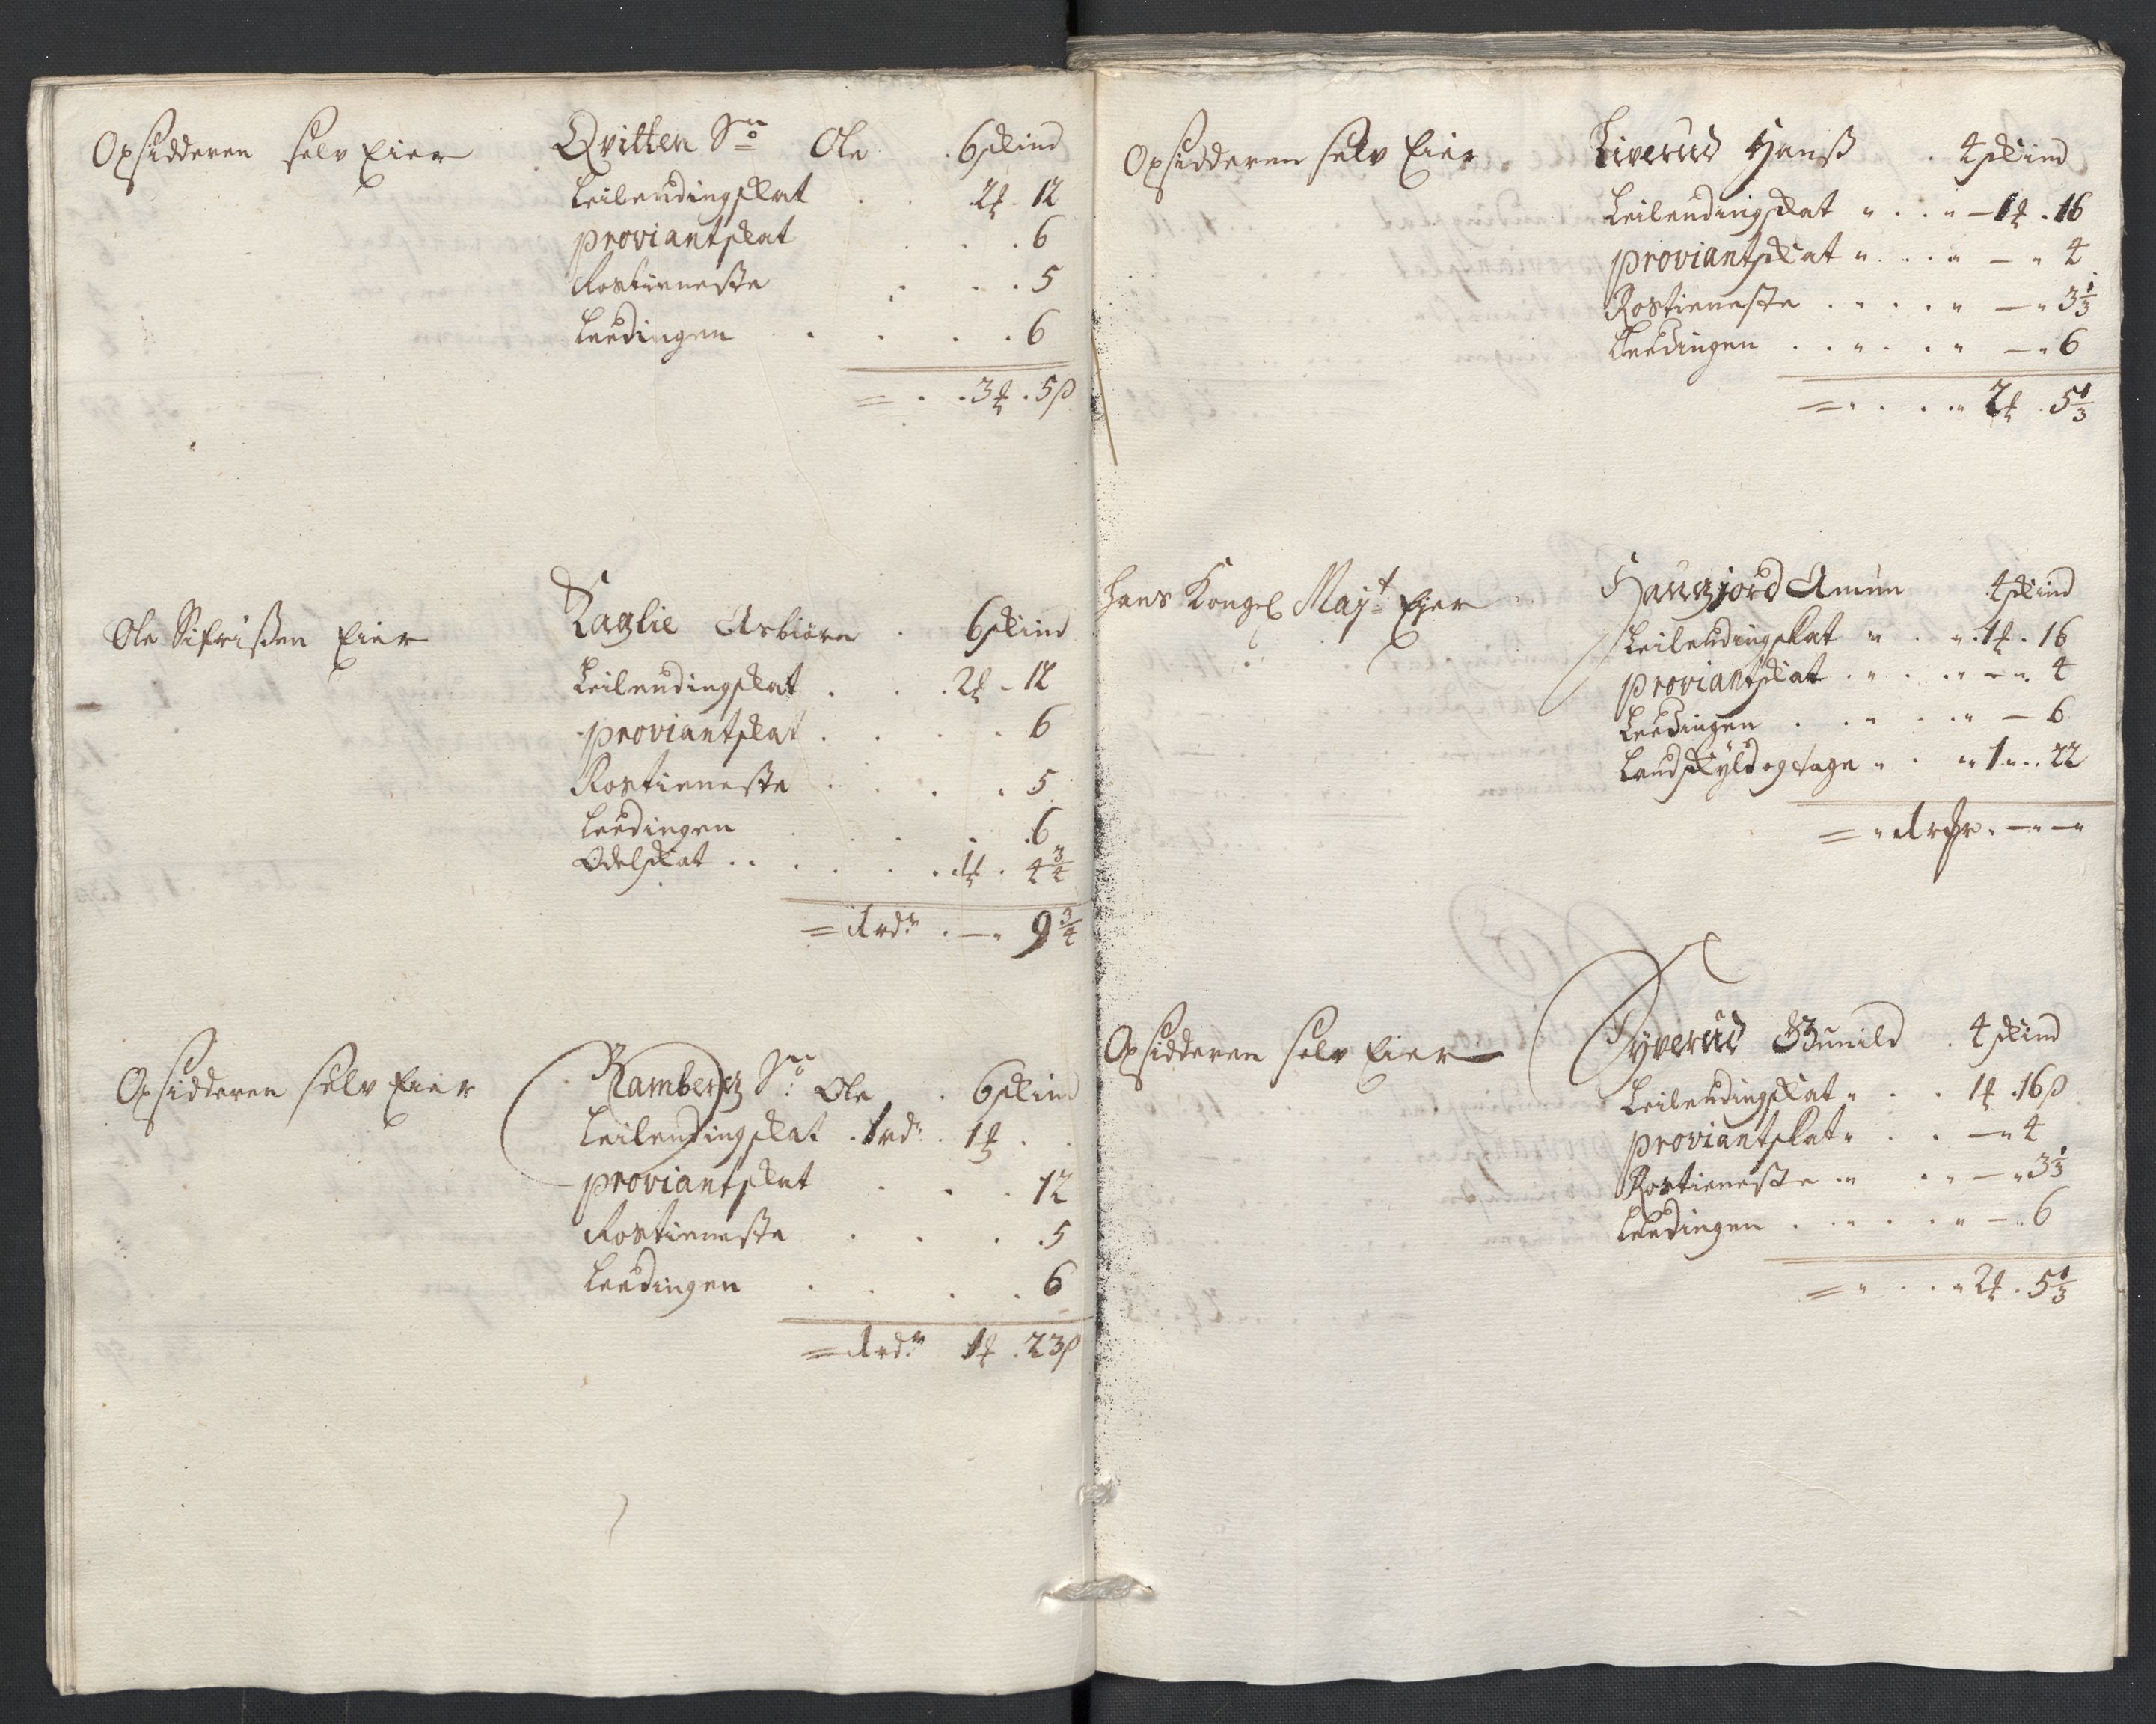 Opsidderen selv Eier Qvitten Sø Ole . 6 skind
Leilendingskat . . 2 ort 12
proviantskat . . . 6
Rostieneste . . . 5
Leedingen . . . . 6
= . . 3 ort . 5 β
Ole Sifrißen Eier Raglie Asbiørn . 6 skind
Leilendingskat . . . 2 ort - 12
proviantskat . . . . 6
Rostieneste . . . 5
Leedingen . . . . 6
Odelskat . . . . . 1 ort . 4 3/4
= 1 rdr . — . 9 3/4
Opsidderen selv Eier Ramberg Sø: Ole . 6 skind
Leilendingskat . 1 rdr . 1 ort . .
proviantskat . . . 12
Rostieneste . . . . 5
Leedingen . . . . 6
= 1 rdr 1 ort . 23 β
Opsidderen selv Eier Liverud Hanß . 4 skind
Leilendingskat " . . " — 1 ort . 16
proviantskat " . . . " — " 4
Rostieneste . " . . " — " 3 1/3
Leedingen . . " . . " — " 6
= " . . . " 2 ort . 5 1/3
Hans Kongel Mayt Ejer Haugjord Amun 4 skind
Leilendingskat " . " . 1 ort . 16
proviantskat . " . . " — " . 4
Leedingen . . " . . " — 6
Landskyld og tage " . " 1 " . . 22
= " 1 rdr . — " — "
Opsidderen selv Eier Gunild . 4 skind
Leilendingskat " . . 1 ort . 16 β
proviantskat " . . — " 4
Rostieneste . " . " — " 3 1/3
Leedingen . . " . . " — " 6
= " . . " 2 ort . 5 1/3